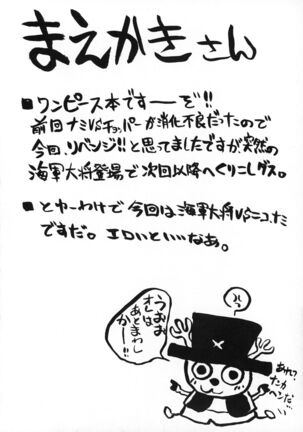 まえがきさん
■ワンピース本ですーーぞ!!
前回ナミVSチョッパーが消化不良だったので
今回、リベンジ!!と思ってましたですが、突然の
海軍大将登場で次回以降へくりこしゲス。
■とゆーわけで今回は海軍大将VSニコ、ナミ
ですだ。エロいといいなあ。
うおお
オレは
あとまわし
かー!!
あれ?
ナンカ
ヘンだ…